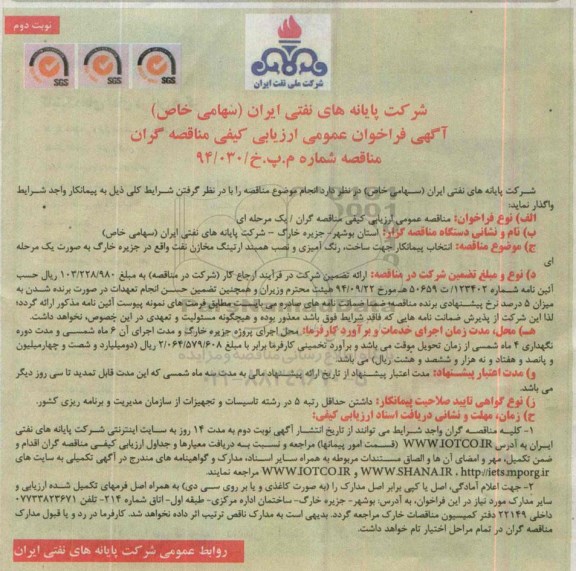 نوبت دوم
SGS SGS SGS
شرکت ملی نفت ایران
شرکت پایانه های نفتی ایران (سهامی خاص)
آگهی فراخوان عمومی ارزیابی کیفی مناقصه گران
مناقصه شماره م.پ.خ/۹۴/۰۳۰
شرکت پایانه های نفتی ایران (سهامی خاص) در نظر دارد انجام موضوع مناقصه را با در نظر گرفتن شرایط کلی ذیل به پیمانکار واجد شرایط
واگذار نماید:
الف) نوع فراخوان: مناقصه عمومی ارزیابی کیفی مناقصه گران / یک مرحله ای
ب) نام و نشانی دستگاه مناقصه گزار: استان بوشهر- جزیره خارگ – شرکت پایانه های نفتی ایران (سهامی خاص)
ج) موضوع مناقصه: انتخاب پیمانکار جهت ساخت، رنگ آمیزی و نصب همبند ارتینگ مخازن نفت واقع در جزیره خارگ به صورت یک مرحله
ای
د) نوع و مبلغ تضمین شرکت در مناقصه: ارائه تضمین شرکت در فرآیند ارجاع کار (شرکت در مناقصه) به مبلغ ۱۰۳/۲۲۸/۹۸۰ ریال حسب
آئین نامه شماره ۱۲۳۴۰۲/ت ۵۰۶۵۹ هـ مورخ ۹۴/۰۹/۲۲ هیئت محترم وزیران و همچنین تضمین حسن انجام تعهدات در صورت برنده شدن به
میزان ۵ درصد نرخ پیشنهادی برنده مناقصه. ضمناً ضمانت نامه های صادره می بایستی مطابق فرمت های نمونه پیوست آئین نامه مذکور ارائه گردد؛
لذا این شرکت از پذیرش ضمانت نامه هایی که فاقد شرایط فوق باشد معذور بوده و هیچگونه مسئولیت و تعهدی در این خصوص، نخواهد داشت.
هـ) محل، مدت زمان اجرای خدمات و برآورد کارفرما: محل اجرای پروژه جزیره خارگ و مدت اجرای آن ۶ ماه شمسی و مدت دوره
نگهداری ۴ ماه شمسی از زمان تحویل موقت می باشد و برآورد تخمینی کارفرما برابر با مبلغ ۲/۰۶۴/۵۷۹/۶۰۸ ریال (دومیلیارد و شصت و چهارمیلیون
و پانصد و هفتاد و نه هزار و ششصد و هشت ریال)، می باشد.
و) مدت اعتبار پیشنهاد: مدت اعتبار پیشنهاد از تاریخ ارائه پیشنهاد مالی به مدت سه ماه شمسی که این مدت قابل تمدید تا سی روز دیگر
می باشد.
ز) نوع گواهی تایید صلاحیت پیمانکار: داشتن حداقل رتبه ۵ در رشته تاسیسات و تجهیزات از سازمان مدیریت و برنامه ریزی کشور.
ح) زمان، مهلت و نشانی دریافت اسناد ارزیابی کیفی:
۱- کلیه مناقصه گران واجد شرایط می توانند از تاریخ انتشار آگهی نوبت دوم به مدت ۱۴ روز به سایت اینترنتی شرکت پایانه های نفتی
ایران به آدرس WWW.IOTCO.IR (قسمت امور پیمانها) مراجعه و نسبت به دریافت معیارها و جداول ارزیابی کیفی مناقصه گران اقدام و
ضمن تکمیل، مهر و امضای آن ها و الصاق مستندات مربوطه به همراه سایر اسناد، مدارک و گواهینامه های مندرج در آگهی تکمیلی به سایت های
http://iets.mporg.ir ، WWW.SHANA.IR و WWW.IOTCO.IR مراجعه نمایند.
۲- جهت اعلام آمادگی، اصل یا کپی برابر اصل مدارک را (به صورت کاغذی و یا بر روی سی دی) به همراه اصل فرمهای تکمیل شده ارزیابی و
سایر مدارک مورد نیاز در این فراخوان، به آدرس: بوشهر- جزیره خارگ- ساختمان اداره مرکزی- طبقه اول- اتاق شماره ۲۱۴- تلفن ۰۷۷۳۳۸۲۳۶۷۱
داخلی ۲۲۱۴۹ دفتر کمیسیون مناقصات خارک مراجعه گردد. بدیهی است به مدارک ناقص ترتیب اثر داده نخواهد شد. کارفرما در رد و یا قبول مدارک
مناقصه گران در تمام مراحل اختیار تام خواهد داشت.
روابط عمومی شرکت پایانه های نفتی ایران